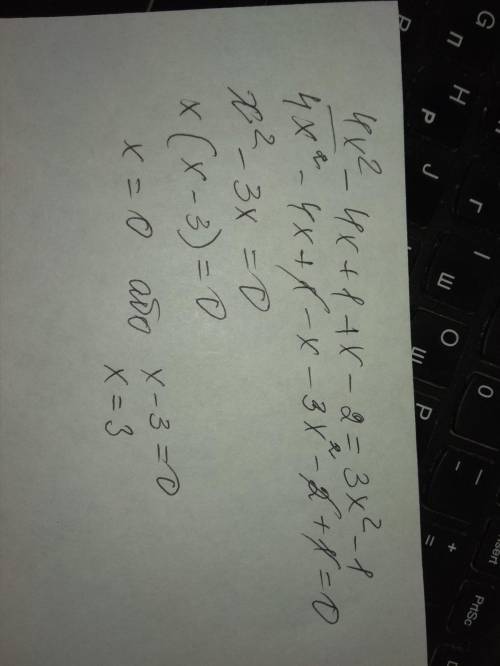 4x² - 4x + 1 + x - 2 = 3x² - 1
4x² - 4x + 1 - x - 3x² - 2 + 1 = 0
x² - 3x = 0
x(x - 3) = 0
x = 0 або x - 3 = 0
x = 3